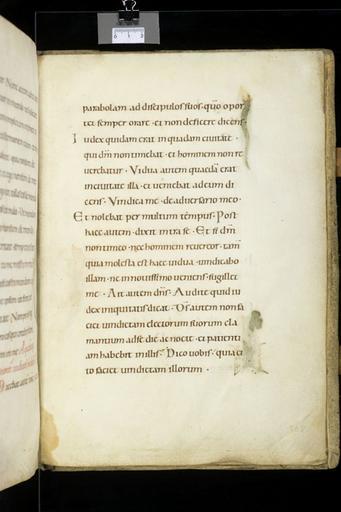 parabolam ad discipulos suos · quō opor
tet semper orare · et non deficere dicens ·
Iudex quidam erat in quadam civitate ·
qui dm̄ non timebat · et hominem non re
verebatur · Vidua autem quaedā erat
in civitate illa · et veniebat ad eum di
cens · Vindica me · de adversario meo ·
Et nolebat per multum tempus · Post
haec autem · dixit intra se · Et si dm̄
non timeo · nec hominem revereor · tam̄
quia molesta est haec vidua · vindicabo
illam · ne in novissimo veniens · sugillet
me · Ait autem dn̄s · Audite quid iu
dex iniquitatis dicat · Ds̄ autem non fa
ciet vindictam electorum suorum cla
mantium ad se die ac nocte · et patienti
am habebit in illis · Dico vobis · quia ci
to faciet vindictam illorum ·